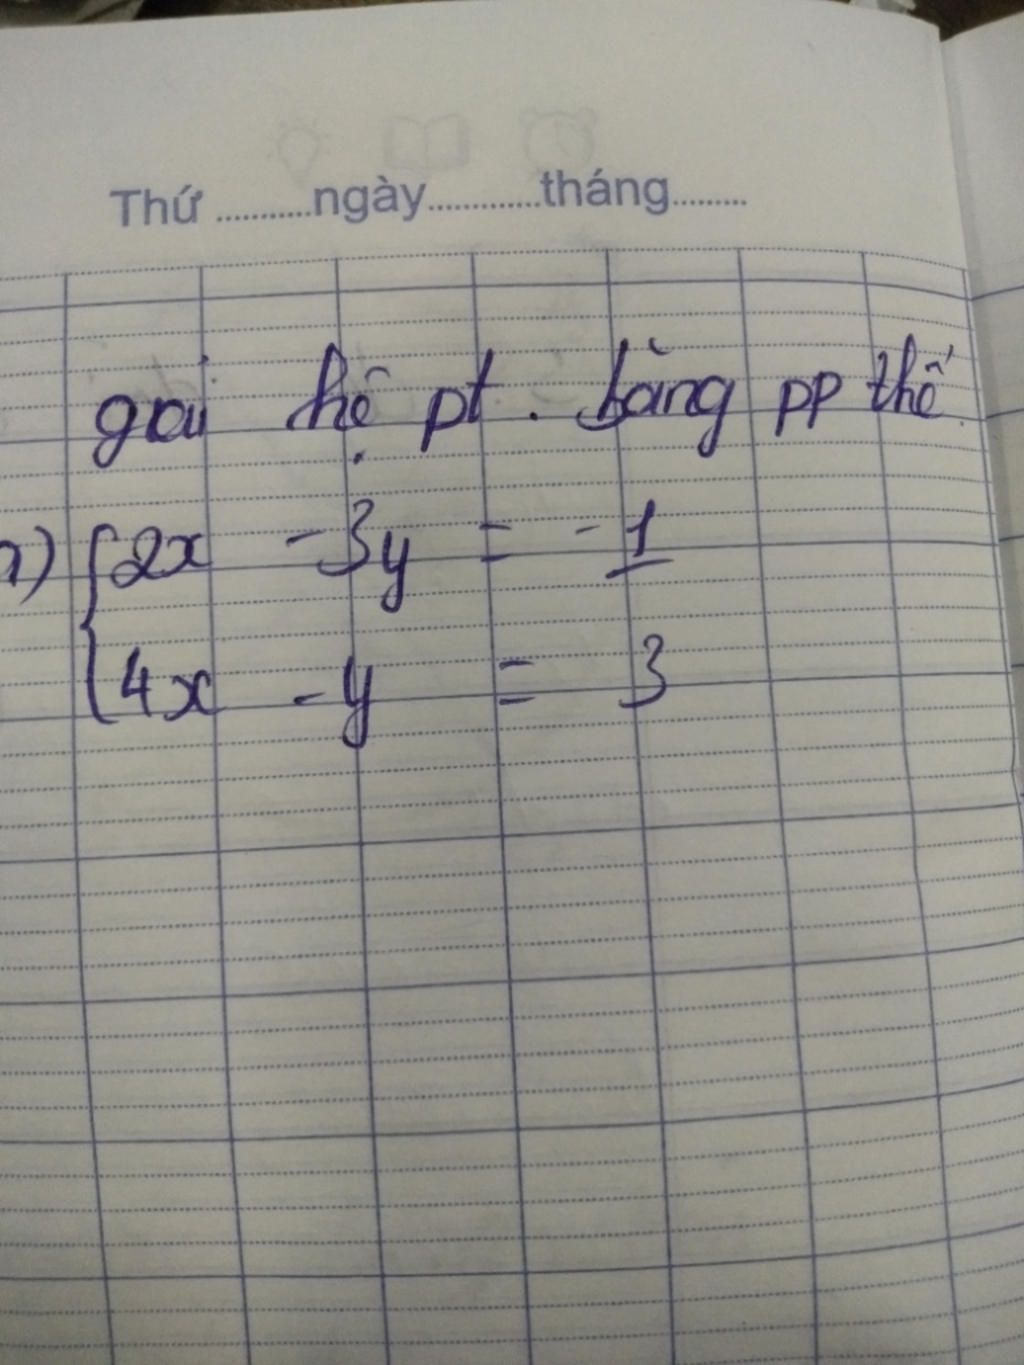 Thứ ...........ngày.............tháng.........
gải hệ pt. bằng pp thế.
a) { 2x - 3y = - 1
4x - y = 3